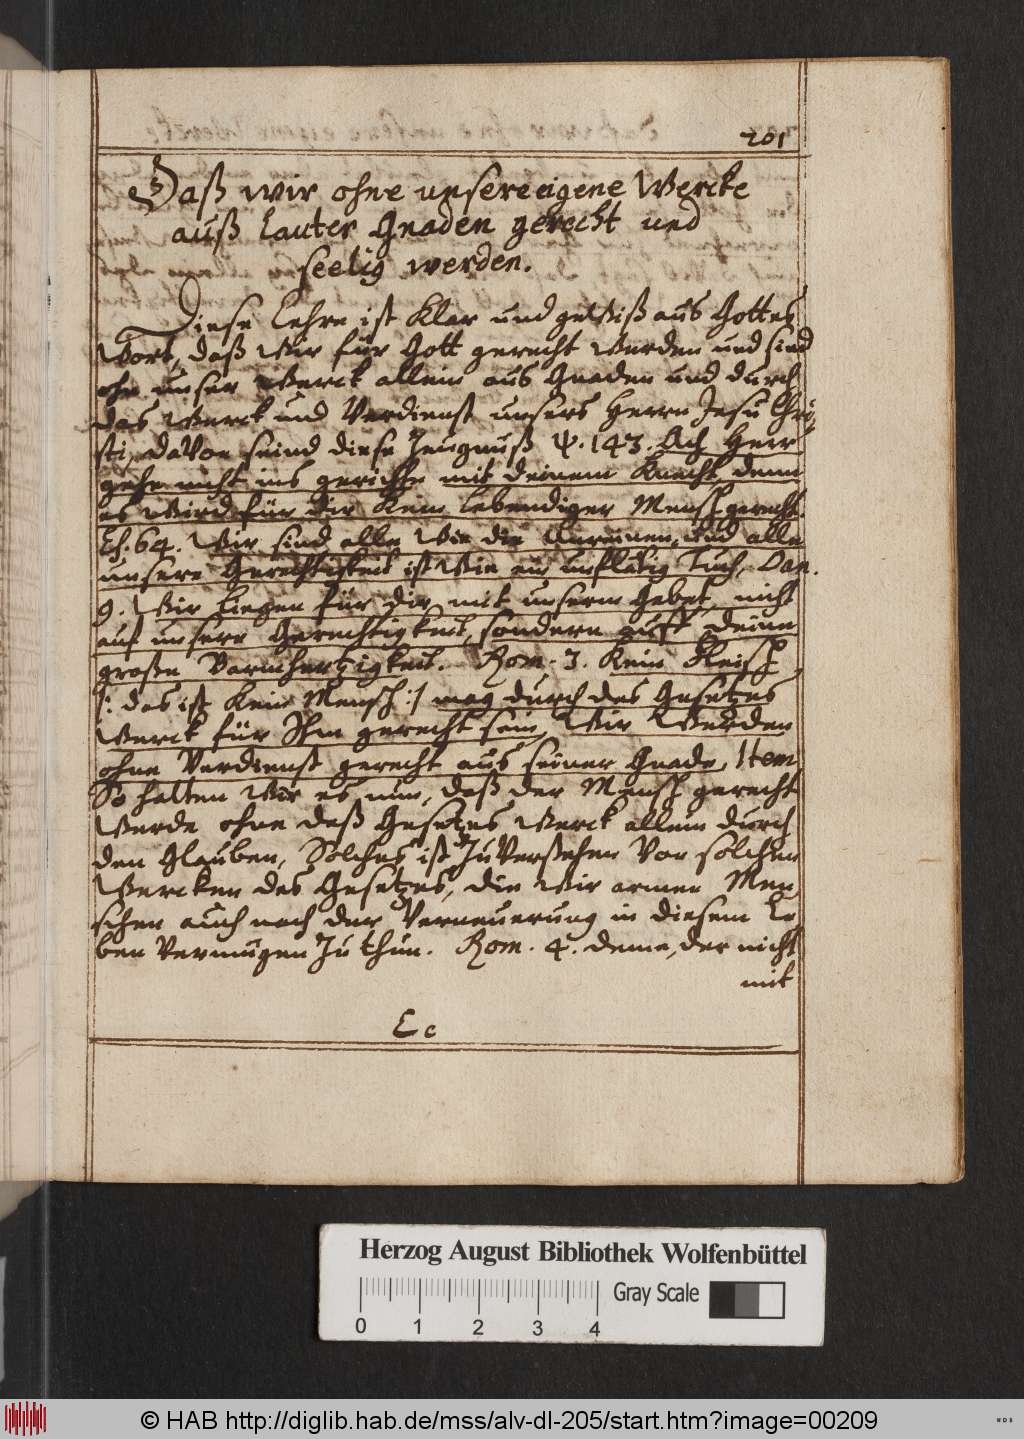 201
Daß wir ohne unsere eigene Wercke
auß lauter Gnaden gerecht und
seelig werden.
Diese Lehre ist klar und gewiß aus Gottes
Wort, daß wir für Gott gerecht werden und sind
ohn unser Werck allein aus Gnaden und durch
das Werck und Verdienst unsers Herrn Jesu Chri-
sti, davon seind diese Zeugnuß Ψ. 143. Ach Herr
gehe nicht ins gerichte mit deinem Knecht, denn
es wird für dir kein lebendiger Mensch gerecht.
Es. 64. Wir sind alle wie die Unreinen, und alle
unsere Gerechtigkeit ist wie ein unflätig Tuch, Dan.
9. Wir liegen für dir mit unserm Gebet, nicht
auf unsere Gerechtigkeit, sondern auff deine
große Barmhertzigkeit. Rom. 3. Kein Fleisch
/: das ist kein Mensch :/ mag durch des Gesetzes
Werck für Ihm gerecht sein, Wir werden
ohne Verdienst gerecht aus seiner Gnade, Item
So halten wir es nun, daß der Mensch gerecht
werde ohne deß Gesetzes Werck allein durch
den Glauben, Solches ist zuverstehen von solchen
Wercken des Gesetzes, die wir armen Men-
schen auch nach der Verneuerung in diesem Le-
ben vermügen zu thun. Rom. 4. deme, der nicht
mit
Cc
Herzog August Bibliothek Wolfenbüttel
Gray Scale
0 1 2 3 4
© HAB http://diglib.hab.de/mss/alv-dl-205/start.htm?image=00209
WDB